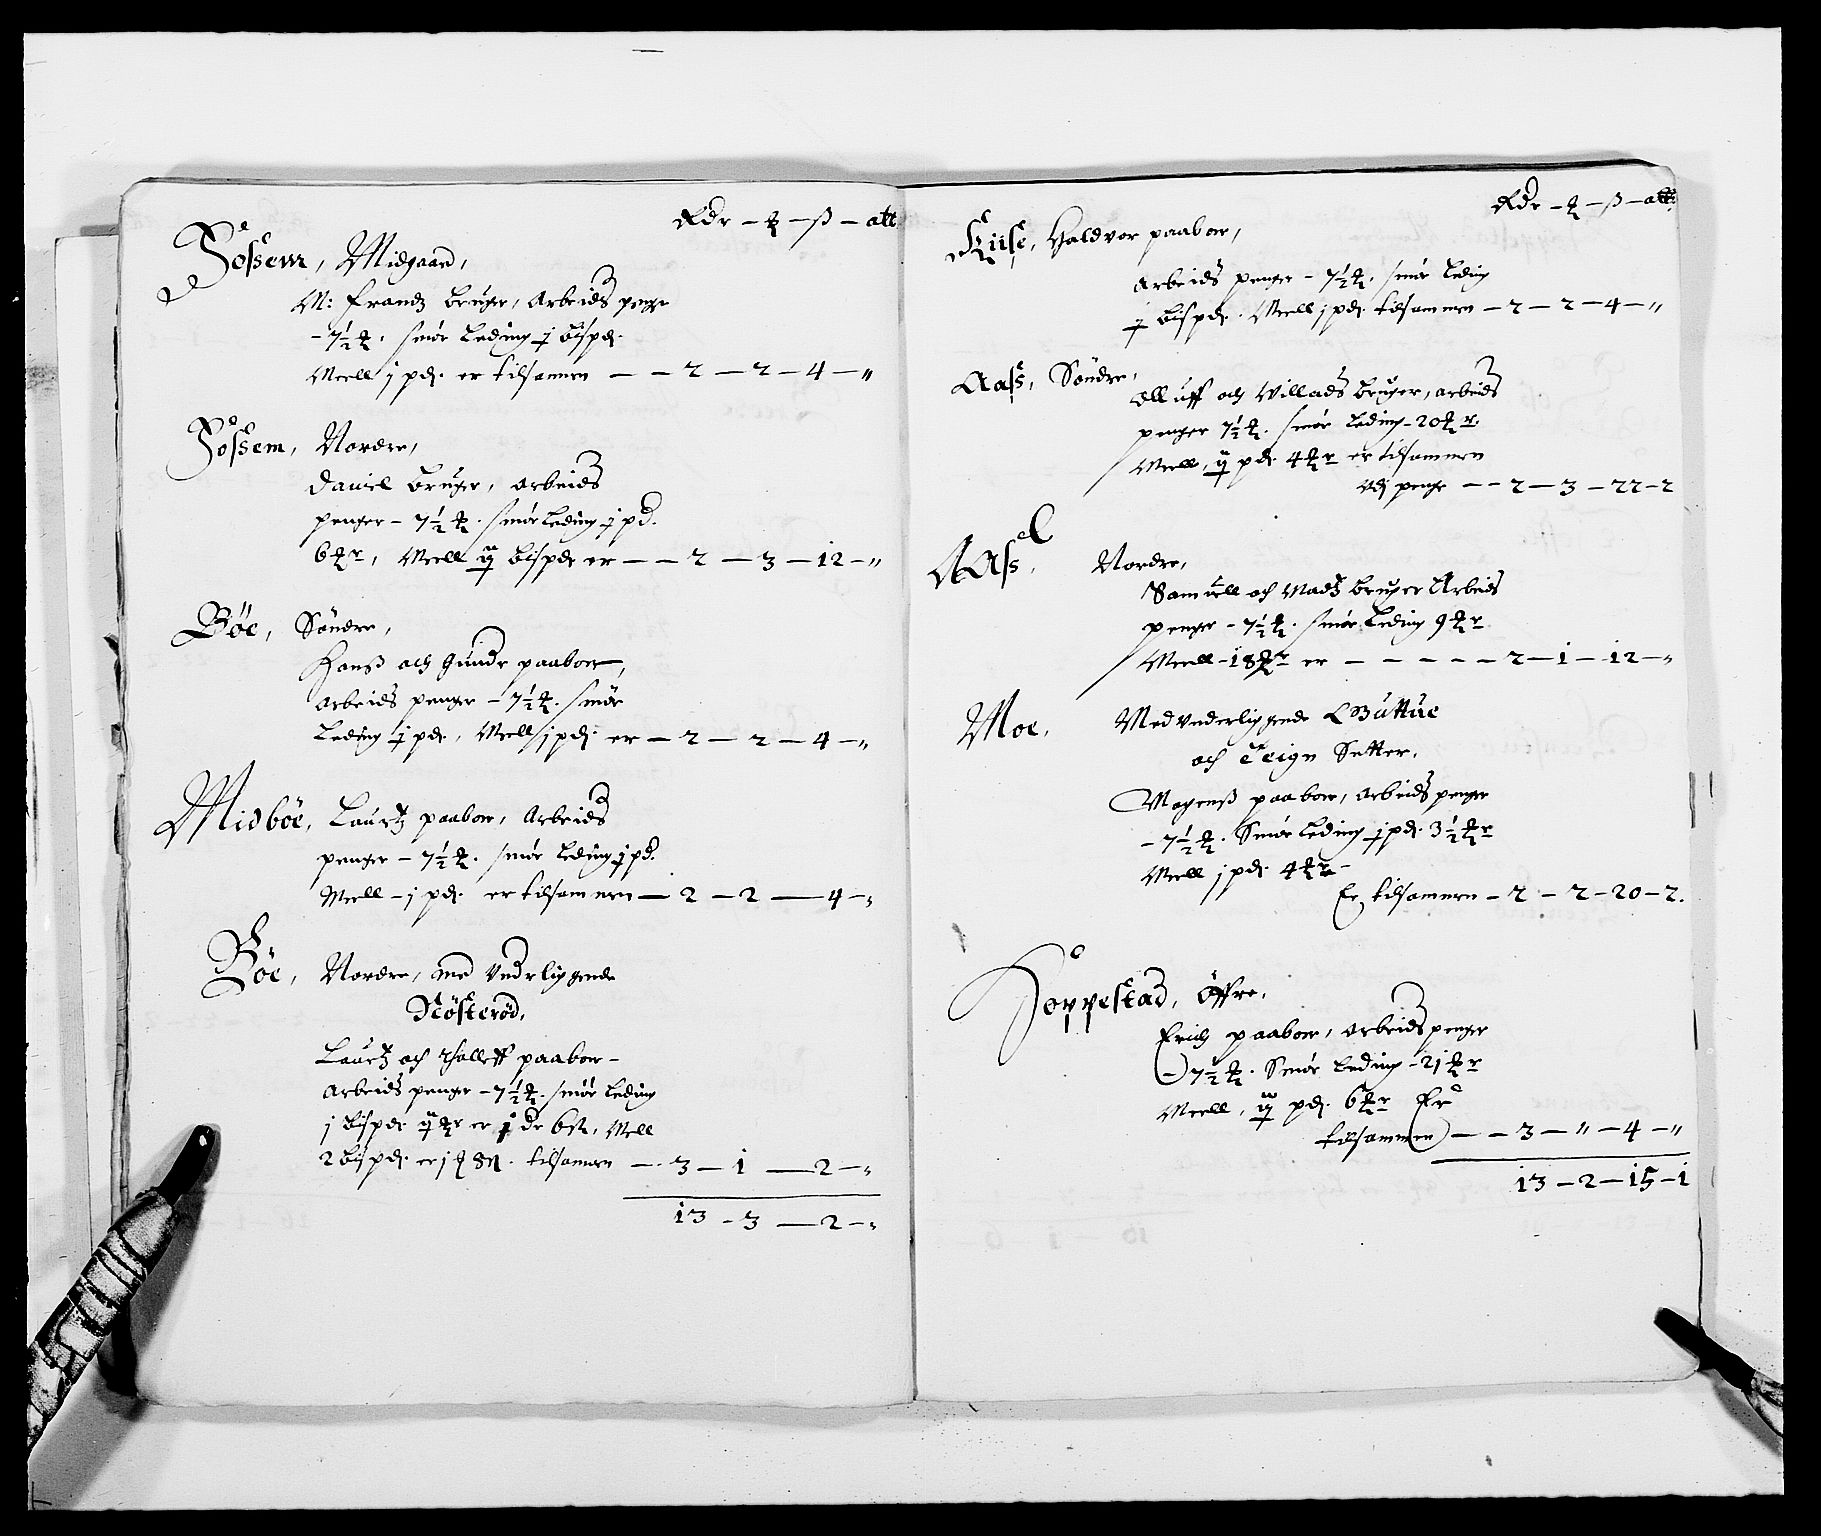 Rdr — ꝣ — ß — alb:
Fossem, Midgaard,
M: Frandtz bruger, Arbeids penge
– 7½ ꝣ. smør leding j bispd.
Meell j pd. er tilsamen — — 2 — 2 — 4 — "
Fossem, Nordre,
Daniel bruger, arbeids
penger – 7½ ꝣ. smør leding j pd.
6 ꝣr, Meell ij bispd er — — 2 — 3 — 12 — "
Böe, Söndre,
Hanß och Gunder paaboer,
Arbeids penger – 7½ ꝣ. smör
Leding j pd, Meell j pd. er — 2 — 2 — 4 — "
Midböe, Lauritz paaboer, Arbeids
penger – 7½ ꝣ. smør leding j pd.
Meell – j pd. er tilsammen — 2 — 2 — 4 — "
Böe, Nordre, med Underliggende
Nösteröd,
Lauritz och paaboer –
Arbeids penger – 7½ ꝣ. smör leding
j bispd ij ꝣr er j 6 ß, Mell
2 bispd. er j ꝣ 8 ß. tilsamen — 3 — 1 — 2 — "
13 – 3 — 2 – "
Rdr — ꝣ — ß — alb:
Kiise, Haldvor paaboer,
Arbeids penger – 7½ ꝣ. smör leding
j bispd. Meell j pd. tilsammen — 2 — 2 — 4 — "
Aass, Söndre,
Olluff och Villads bruger, arbeids
penger 7½ ꝣ. smör leding – 20 ꝣr.
Meell, ij pd. 4 ꝣr er tilsammen
udj penge — – 2 — 3 — 22 — 2
Aass, Nordre,
Samuell och Madtz bruger Arbeids
penger – 7½ ꝣ. smör leding 9 ꝣr
Meell – 18 ꝣr er — — — — — 2 — 1 — 12 — "
Moe, Med underliggende
och Teign Setter,
Mogenß paaboer, arbeids penger
– 7½ ꝣ. Smör leding j pd. 3½ ꝣr
Meell j pd. 4 ꝣr –
Er tilsammen – 2 – 2 – 20 – 2.
Hoppestad, Öffre,
Erich paaboer, arbeids penger
– 7½ ꝣ. Smör leding – 21 ꝣr
Meell, ij pd. 6 ꝣr Er
tilsammen — – 3 — " — 4 — "
13 — 2 — 15 – 1